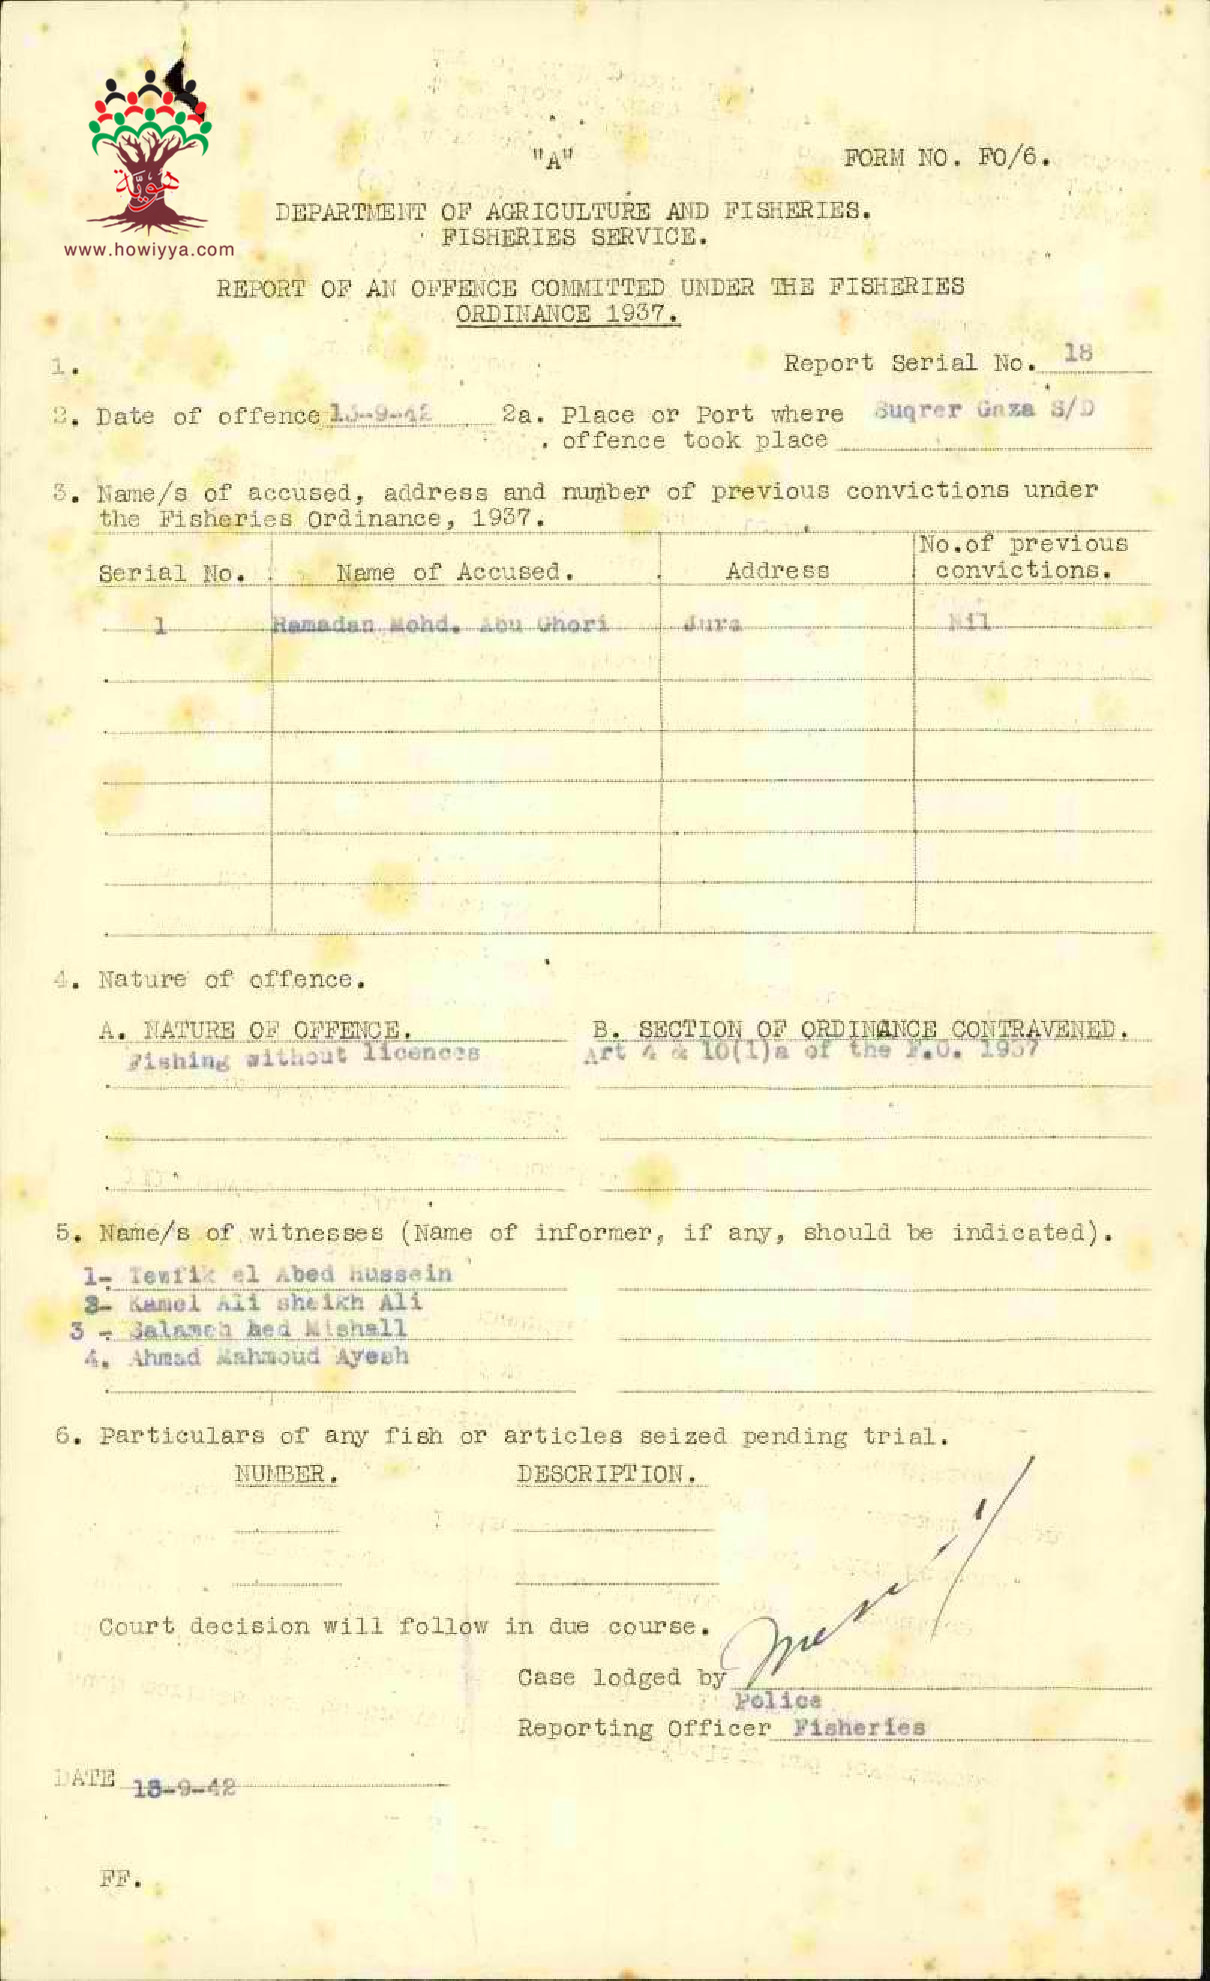 هوية
www.howiyya.com
"A"
FORM NO. FO/6.
DEPARTMENT OF AGRICULTURE AND FISHERIES.
FISHERIES SERVICE.
REPORT OF AN OFFENCE COMMITTED UNDER THE FISHERIES
ORDINANCE 1937.
1. Report Serial No. 18
2. Date of offence 2a. Place or Port where Suqrer Gaza S/D
offence took place
3. Name/s of accused, address and number of previous convictions under
the Fisheries Ordinance, 1937.
Serial No. Name of Accused. Address No.of previous convictions.
1 Ramadan Mohd. Abu Ghori Jura Nil
4. Nature of offence.
A. NATURE OF OFFENCE. B. SECTION OF ORDINANCE CONTRAVENED.
Fishing without licences Art 4 & 10(1)a of the F.O. 1937
5. Name/s of witnesses (Name of informer, if any, should be indicated).
1- Tewfik el Abed Hussein
2- Kamel Ali sheikh Ali
3 - Salameh Mishall
4. Ahmad Mahmoud Ayesh
6. Particulars of any fish or articles seized pending trial.
NUMBER. DESCRIPTION.
Court decision will follow in due course.
Case lodged by
Police
Reporting Officer Fisheries
DATE 18-9-42
FF.